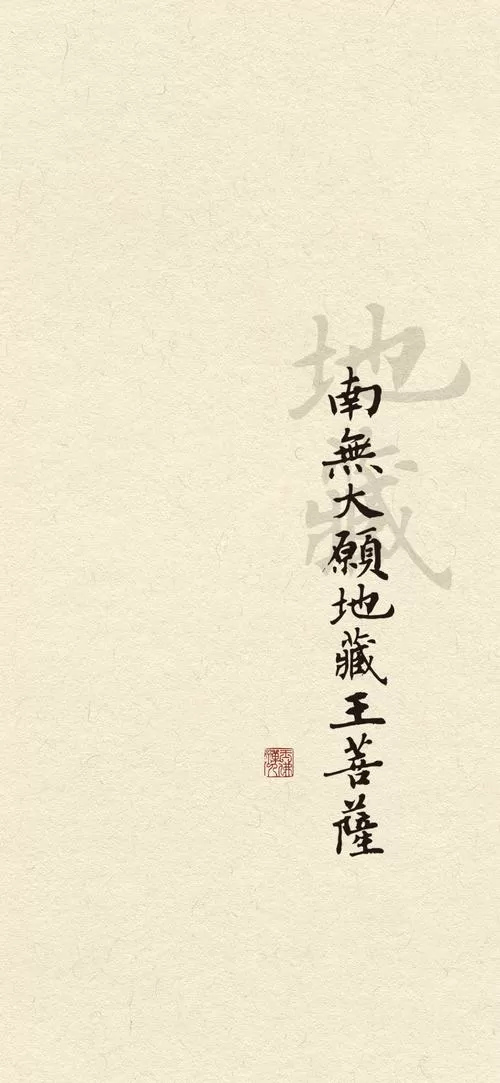 地藏
南無大願地藏王菩薩